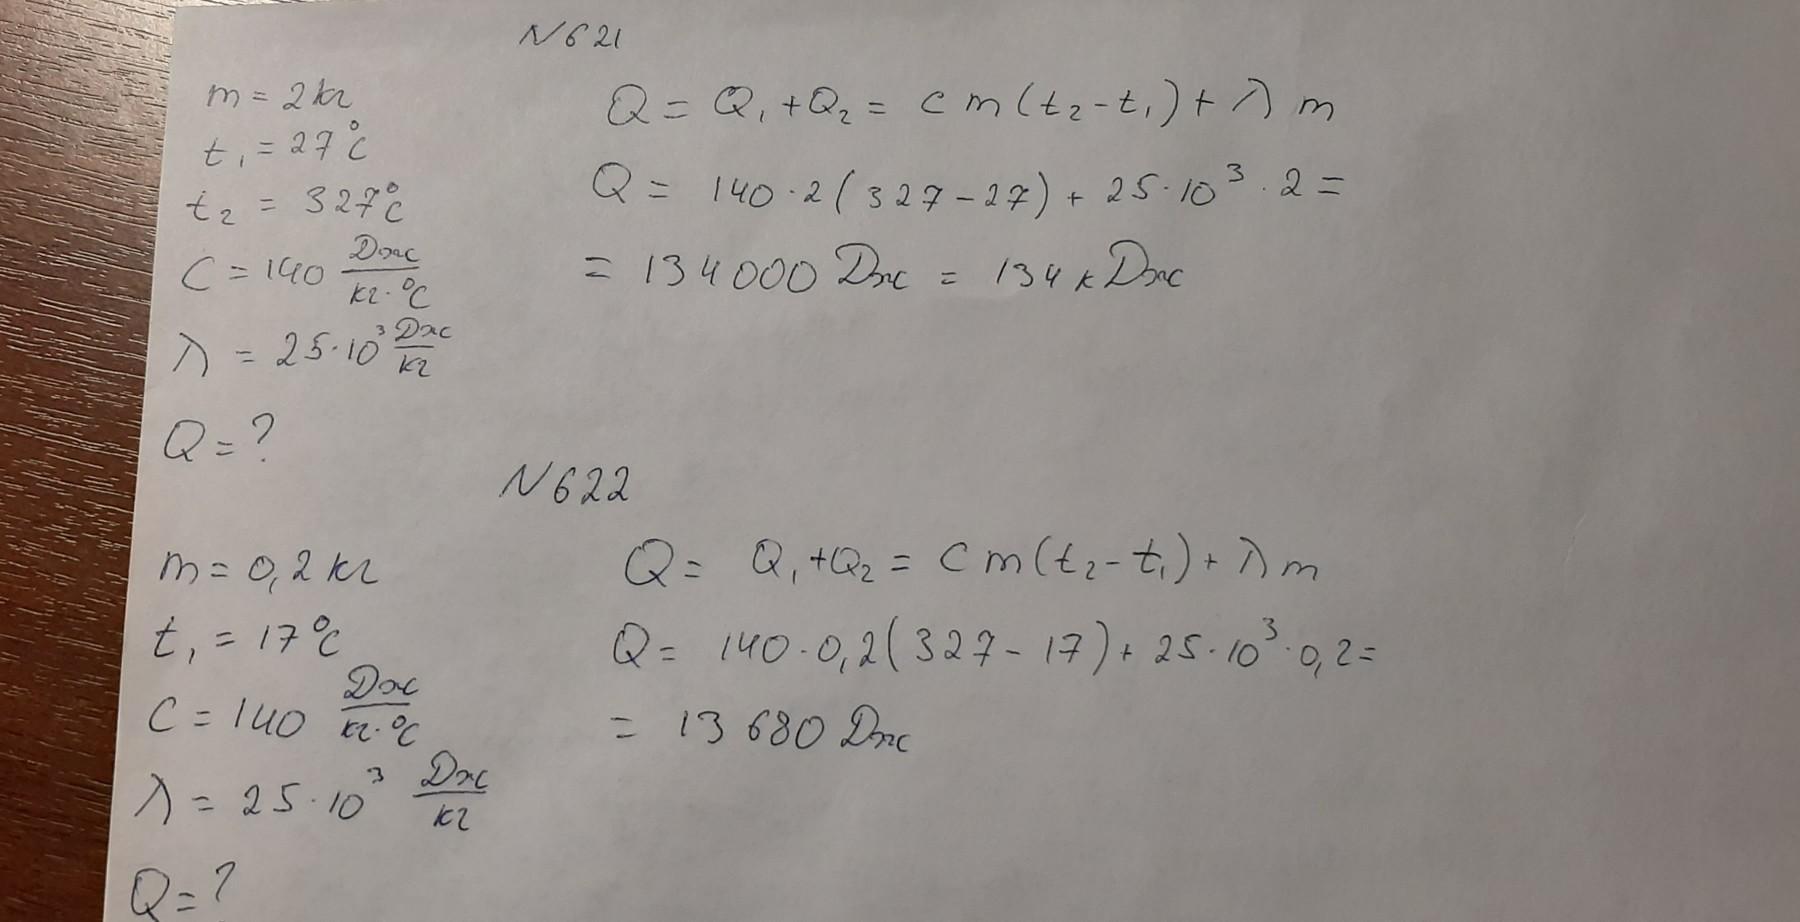 N 621
m = 2 кг
t₁ = 27 °C
t₂ = 327 °C
C = 140 Дж/кг·°C
λ = 25·10³ Дж/кг
Q = ?
Q = Q₁ + Q₂ = c m (t₂ - t₁) + λ m
Q = 140·2 (327 - 27) + 25·10³·2 =
= 134000 Дж = 134 кДж
N 622
m = 0,2 кг
t₁ = 17 °C
C = 140 Дж/кг·°C
λ = 25·10³ Дж/кг
Q = ?
Q = Q₁ + Q₂ = c m (t₂ - t₁) + λ m
Q = 140·0,2 (327 - 17) + 25·10³·0,2 =
= 13 680 Дж